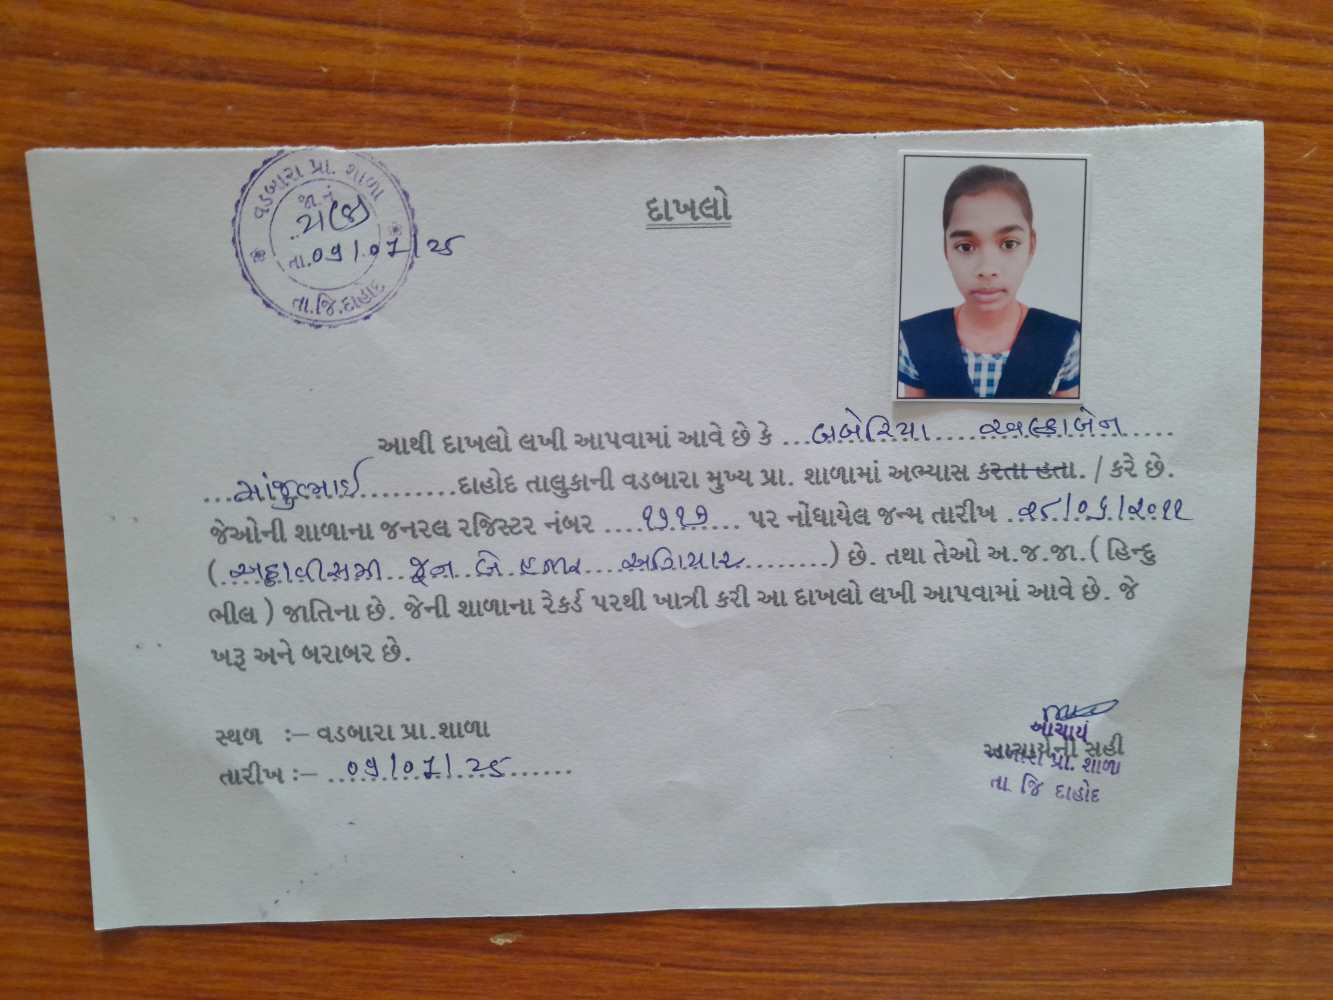 વડબારા પ્રા. શાળા
જા.નં
તા.09/07/25
તા.જિ.દાહોદ
દાખલો
આથી દાખલો લખી આપવામાં આવે છે કે ...બબેરિયા....અલ્કાબેન.....
...માંજુભાઈ..........દાહોદ તાલુકાની વડબારા મુખ્ય પ્રા. શાળામાં અભ્યાસ કરતા હતા. / કરે છે.
જેઓની શાળાના જનરલ રજિસ્ટર નંબર ....૧૭૧૭... પર નોંધાયેલ જન્મ તારીખ .૨૮/૦૬/૨૦૧૧
(.અઠ્ઠાવીસમી..જૂન..બે.હજાર....અગિયાર........) છે. તથા તેઓ અ.જ.જા. ( હિન્દુ
ભીલ ) જાતિના છે. જેની શાળાના રેકર્ડ પરથી ખાત્રી કરી આ દાખલો લખી આપવામાં આવે છે. જે
ખરૂ અને બરાબર છે.
સ્થળ :– વડબારા પ્રા.શાળા
તારીખ :– ..09/07/25......
આચાર્ય
આચાર્યની સહી
પ્રા. શાળા
તા. જિ દાહોદ